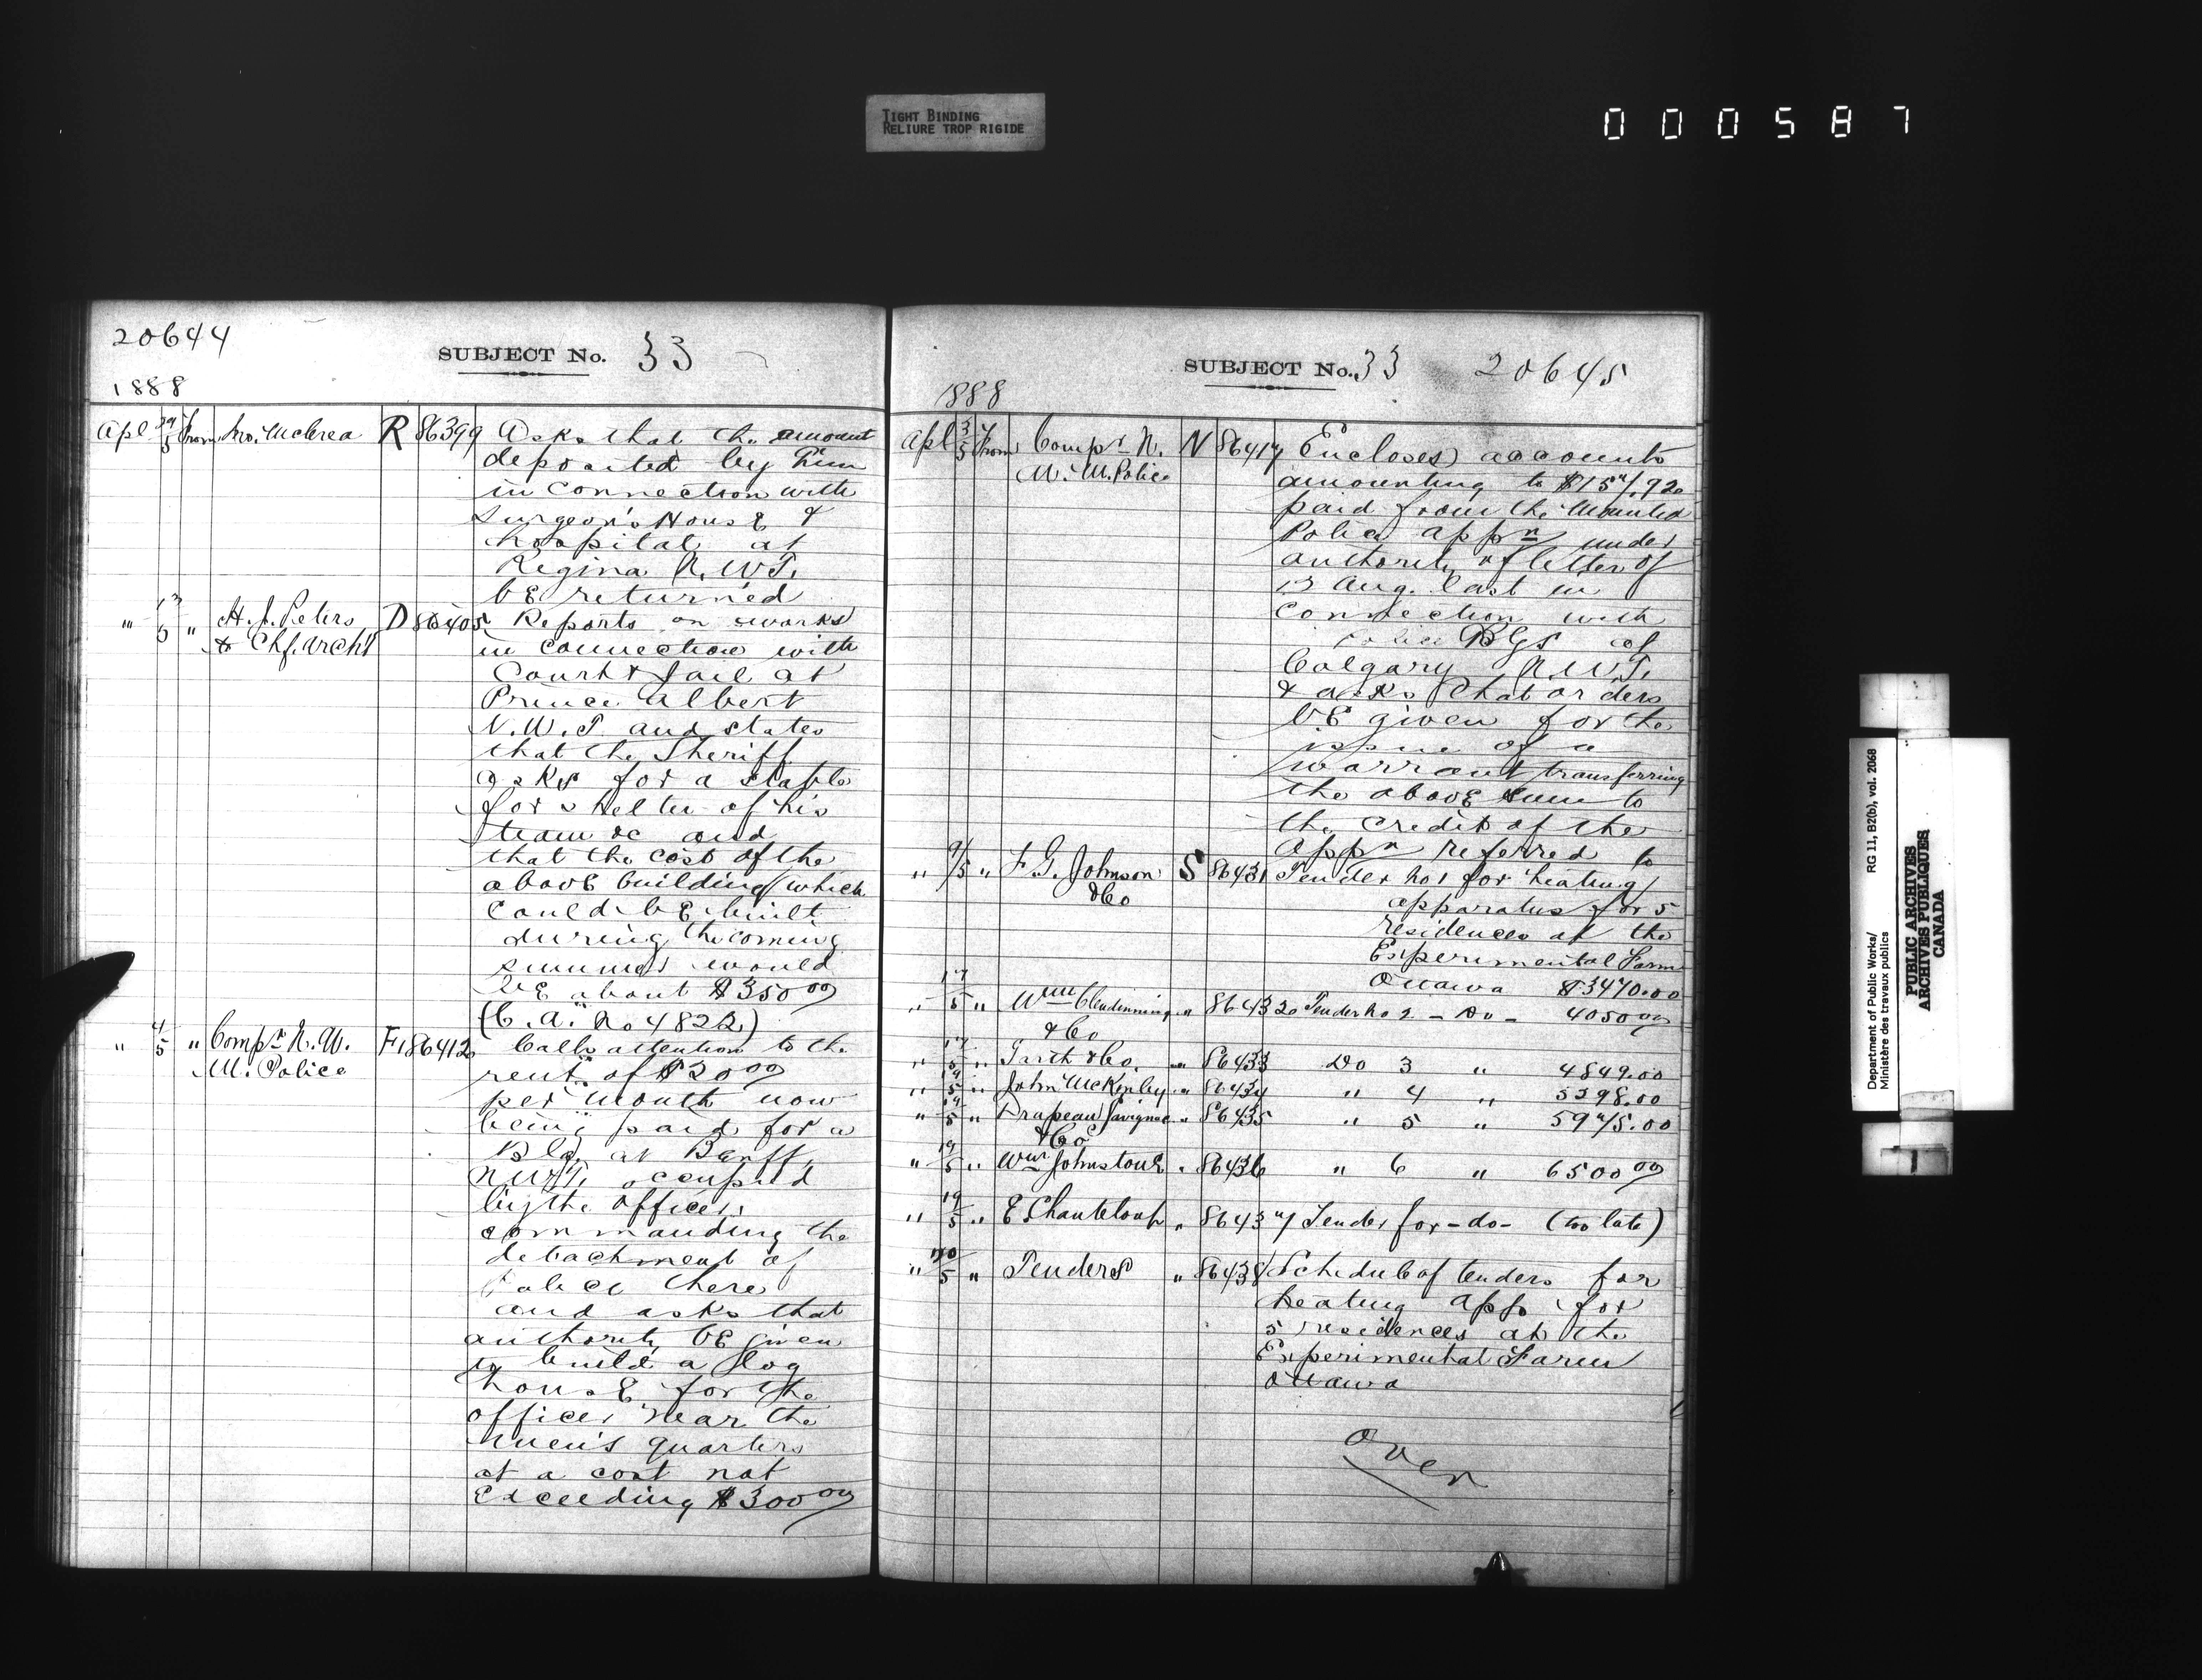 TIGHT BINDING
RELIURE TROP RIGIDE
000587
20644
SUBJECT No. 33
1888
Apl 29/5 From Jno. McCrea R 86399 Asks that the amount
deposited by him
in connection with
Surgeon's House &
hospital at
Regina N.W.T.
be returned
" 13/5 " H. J. Peters D 86405 Reports on works
& Chf. Archt in connection with
Court & Jail at
Prince Albert
N.W.T. and states
that the Sheriff
asks for a stable
for shelter of his
team &c and
that the cost of the
above building which
could be built
during the coming
summer would
be about $350 00
(C. A. No 4822)
" 4/5 " Compr N. W. F 86412 Calls attention to the
M. Police rent of $20 00
per month now
being paid for a
Bldg at Banff,
N.W.T. occupied
by the officer
commanding the
detachment of
Police there
and asks that
authority be given
to build a log
house for the
officer near the
men's quarters
at a cost not
exceeding $300 00
SUBJECT No. 33 20645
1888
Apl 3/5 From Compr N. N 86417 Encloses accounts
W. M. Police amounting to $157.92
paid from the Mounted
Police appn under
authority of letter of
13 Aug. last in
connection with
Police Bgs at
Calgary N.W.T.
& asks that orders
be given for the
issue of a
warrant transferring
the above sum to
the credit of the
appn referred to
" 9/5 " F. G. Johnson S 86431 Tender No 1 for heating
& Co apparatus for 5
residences at the
Experimental Farm
Ottawa $3470.00
" 17/5 " Wm Clendinning " 86432 Tender No 2 - Do - 4050 00
& Co
" 17/5 " Garth & Co. " 86433 Do 3 " 4849.00
" 19/5 " John McKinley " 86434 " 4 " 5398.00
" 19/5 " Drapeau Savignac " 86435 " 5 " 5975.00
& Co
" 19/5 " Wm Johnstone " 86436 " 6 " 6500 00
" 19/5 " E. Chanteloup " 86437 Tender for - do - (too late)
" 20/5 " Tenders " 86438 Schedule of tenders for
heating app for
5 residences at the
Experimental Farm
Ottawa
Over
Department of Public Works/ RG 11, B2(b), vol. 2068
Ministère des travaux publics
PUBLIC ARCHIVES
ARCHIVES PUBLIQUES
CANADA